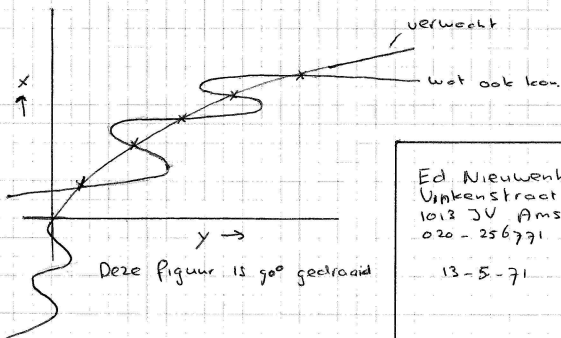 verwacht
wat ook kon.
x
y →
Deze figuur is 90° gedraaid
Ed Nieuwenh
Vinkenstraat
1013 JV Ams
020 - 256771
13-5-71